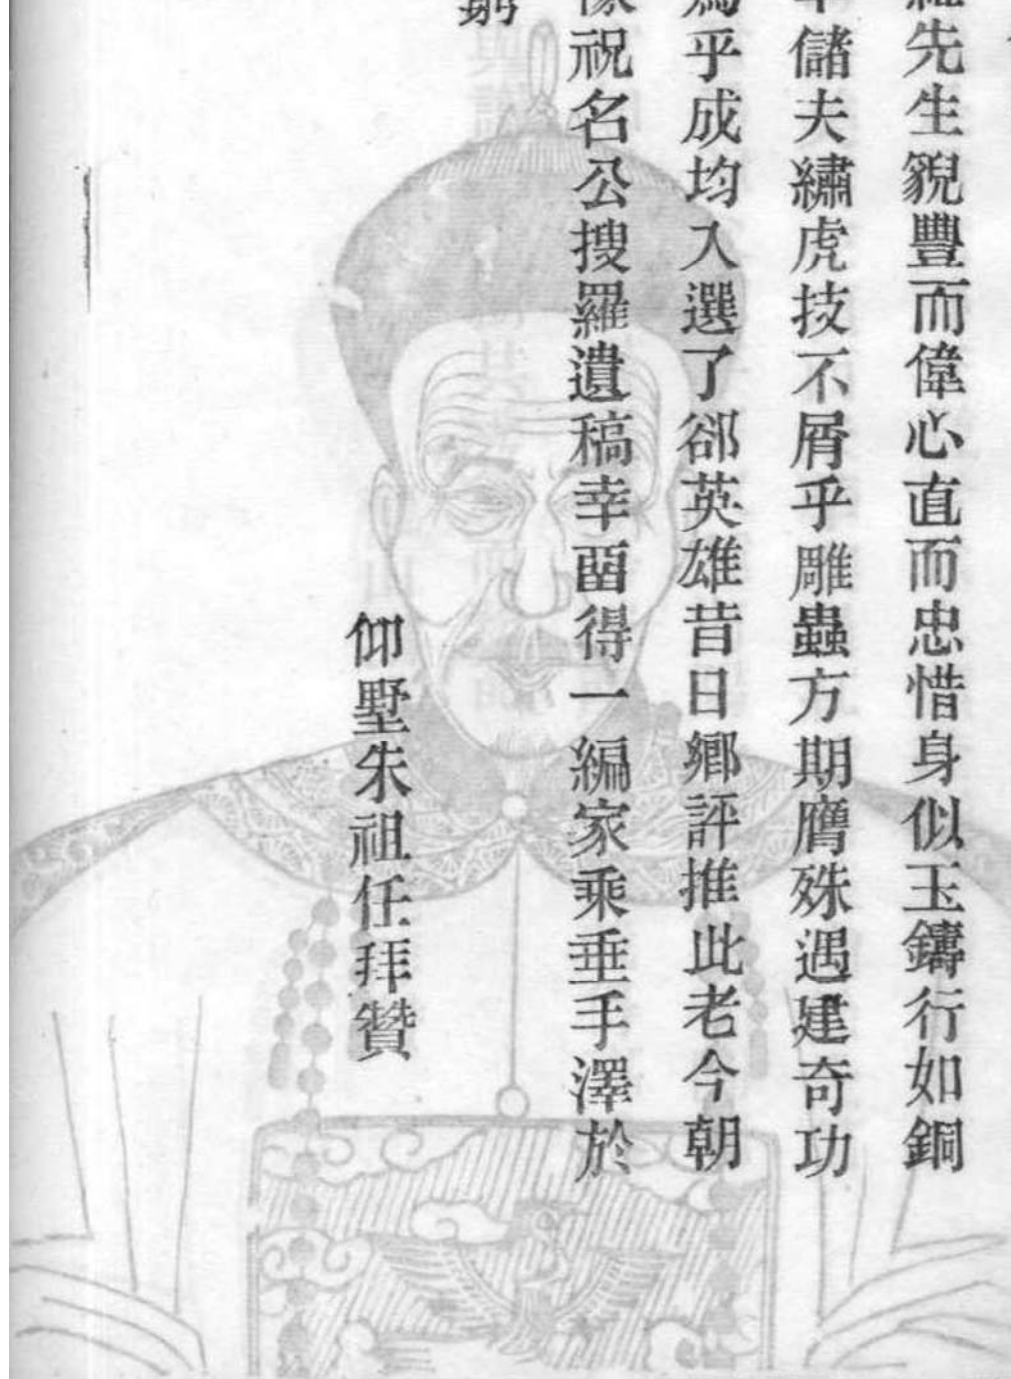 先生貌豐而偉心直而忠惜身似玉鑄行如銅
儲夫繡虎技不屑乎雕蟲方期膺殊遇建奇功
乎成均入選了郤英雄昔日鄉評推此老今朝
祝名公搜羅遺稿幸畱得一編家乘垂手澤於
仰墅朱祖任拜贊